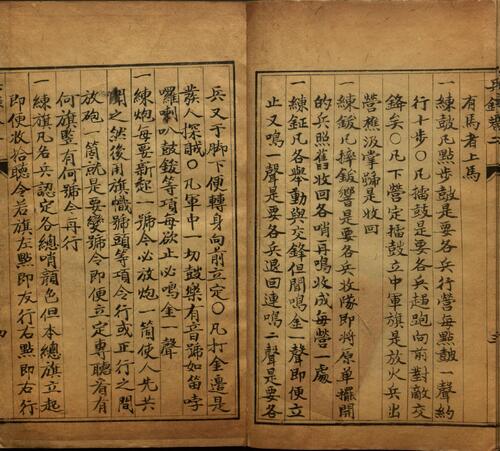 有馬者上馬
一練鼓凡點步鼓是要各兵行營每點鼓一聲約
行十步○凡擂鼓是要各兵趕跑向前對敵交
鋒矣○凡下營定擂鼓立中軍旗是放火兵出
營樵汲掌號是收回
一練鈸凡摔鈸響是要各兵收隊即將原單擺開
的兵照舊收回各哨再鳴收成每營一處
一練鉦凡各舉動與交鋒但聞鳴金一聲即便立
止又鳴一聲是要各兵退回連鳴二聲是要各
兵又于脚下便轉身向前立定○凡打金邊是
發人探賊○凡軍中一切鼓樂有音號如笛哱
囉喇叭鼓鈸等項每欲止必鳴金一聲
一練炮每要新起一號令必放炮一箇使人先共
聞之然後用旗幟號頭等項令行或正行之間
放砲一箇就是要變號令即便立定專聽看有
何旗豎有何號令再行
一練旗凡各兵認定各總哨顏色但本總旗立起
即便收拾聽令若旗左點即左行右點即右行